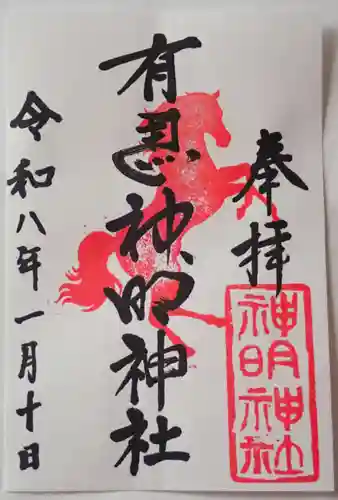 奉拝
有鹿神明社
神明神社
令和八年一月十日